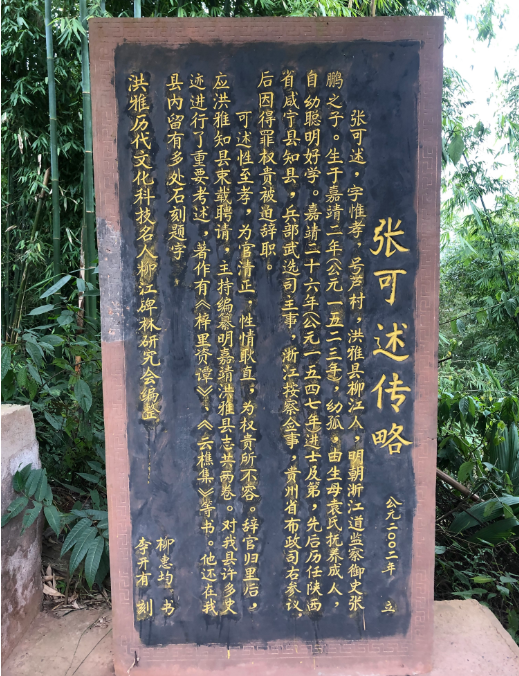 张可述传略
公元二〇〇二年 立
张可述，字惟孝，号芦村，洪雅县柳江人，明朝浙江道监察御史张
鹏之子。生于嘉靖二年（公元一五二三年），幼孤。由生母袁氏抚养成人，
自幼聪明好学。嘉靖二十六年（公元一五四七年进士及第，先后历任陕西
省咸宁县知县，兵部武选司主事，浙江按察佥事，贵州省布政司右参议，
后因得罪权贵被迫辞职。
可述性至孝，为官清正，性情耿直，为权贵所不容。辞官归里后，
应洪雅知县束载聘请，主持编纂明嘉靖洪雅县志共两卷。对我县许多史
迹进行了重要考述，著作有《梓里资谭》、《云樵集》等书。他还在我
县内留有多处石刻题字。
洪雅历代文化科技名人柳江碑林研究会编整
柳惠均 书
李开有 刻